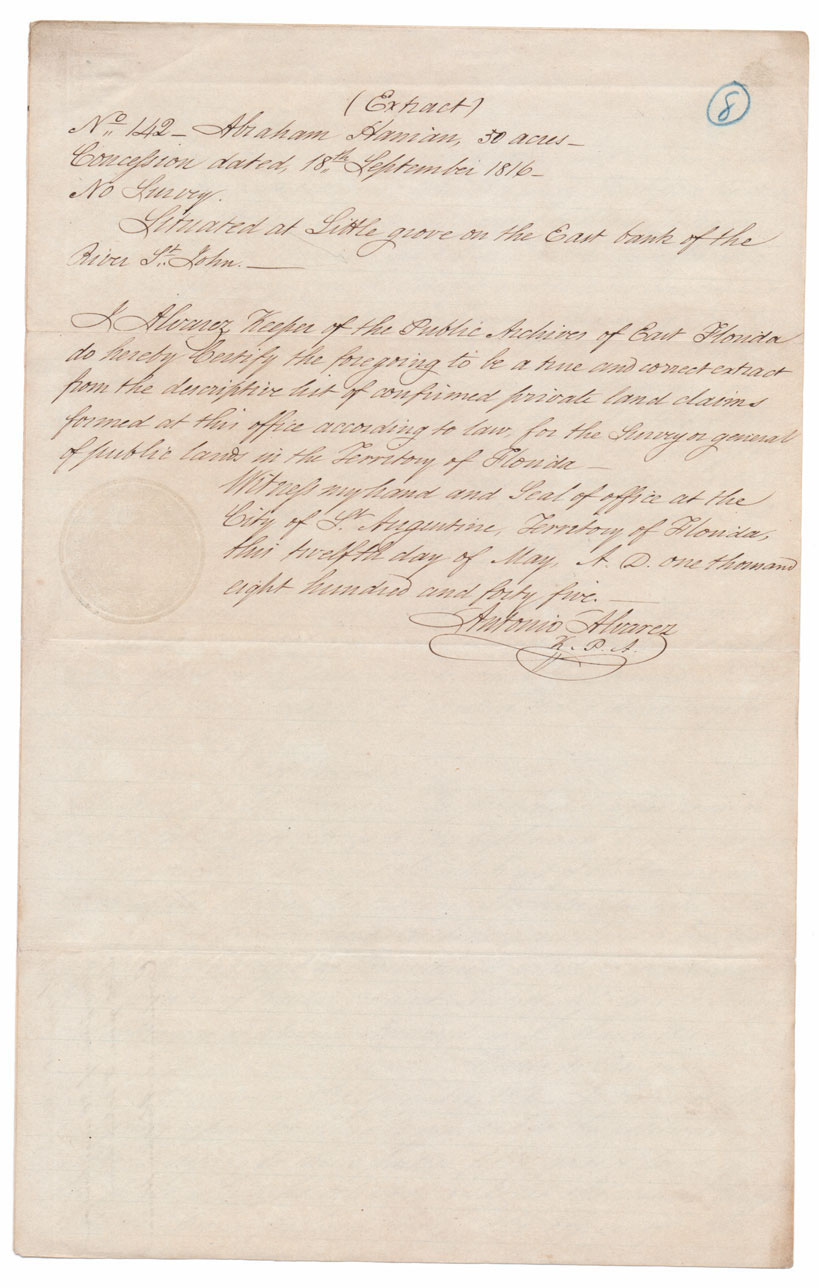 8
(Extract)
No. 142 - Abraham Hanian, 30 acres -
Concession dated, 18th September 1816 -
No Survey.
Situated at Little grove on the East bank of the
River St. John. —
I Alvarez Keeper of the Public Archives of East Florida
do hereby Certify the foregoing to be a true and correct extract
from the descriptive list of confirmed private land claims
formed at this office according to law, for the Surveyor general
of public lands in the Territory of Florida —
Witness my hand and Seal of office at the
City of St. Augustine, Territory of Florida,
this twelfth day of May, A. D. one thousand
eight hundred and forty five. —
Antonio Alvarez
K. P. A.